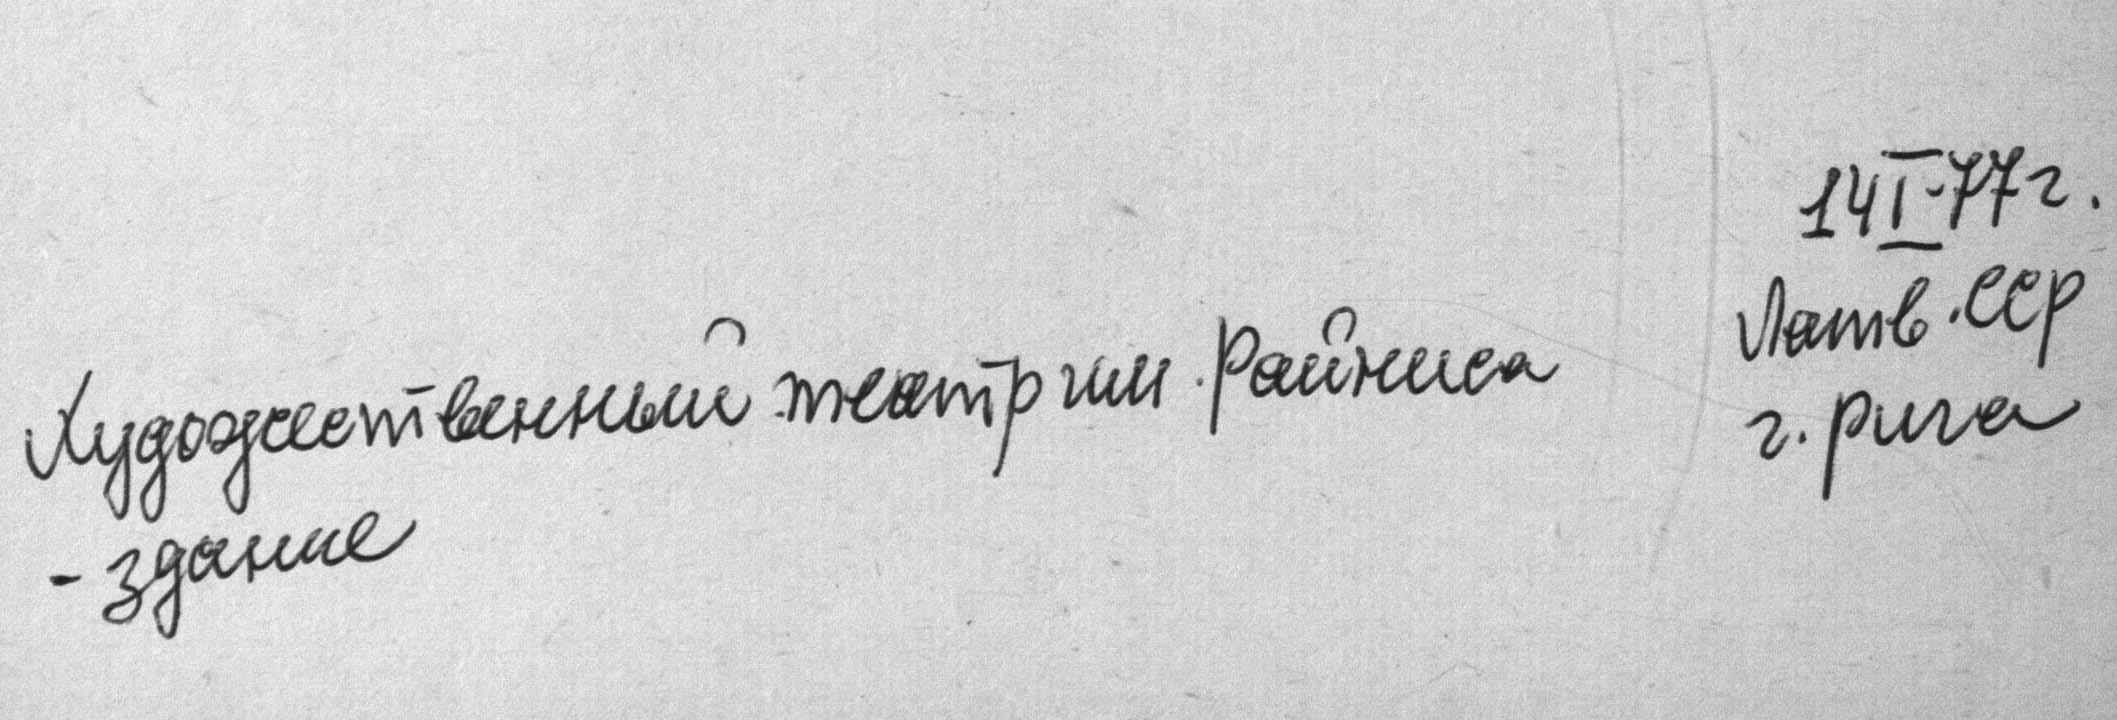 14 I-77г.
Латв. ССР
г. Рига
Художественный театр им. Райниса
- здание